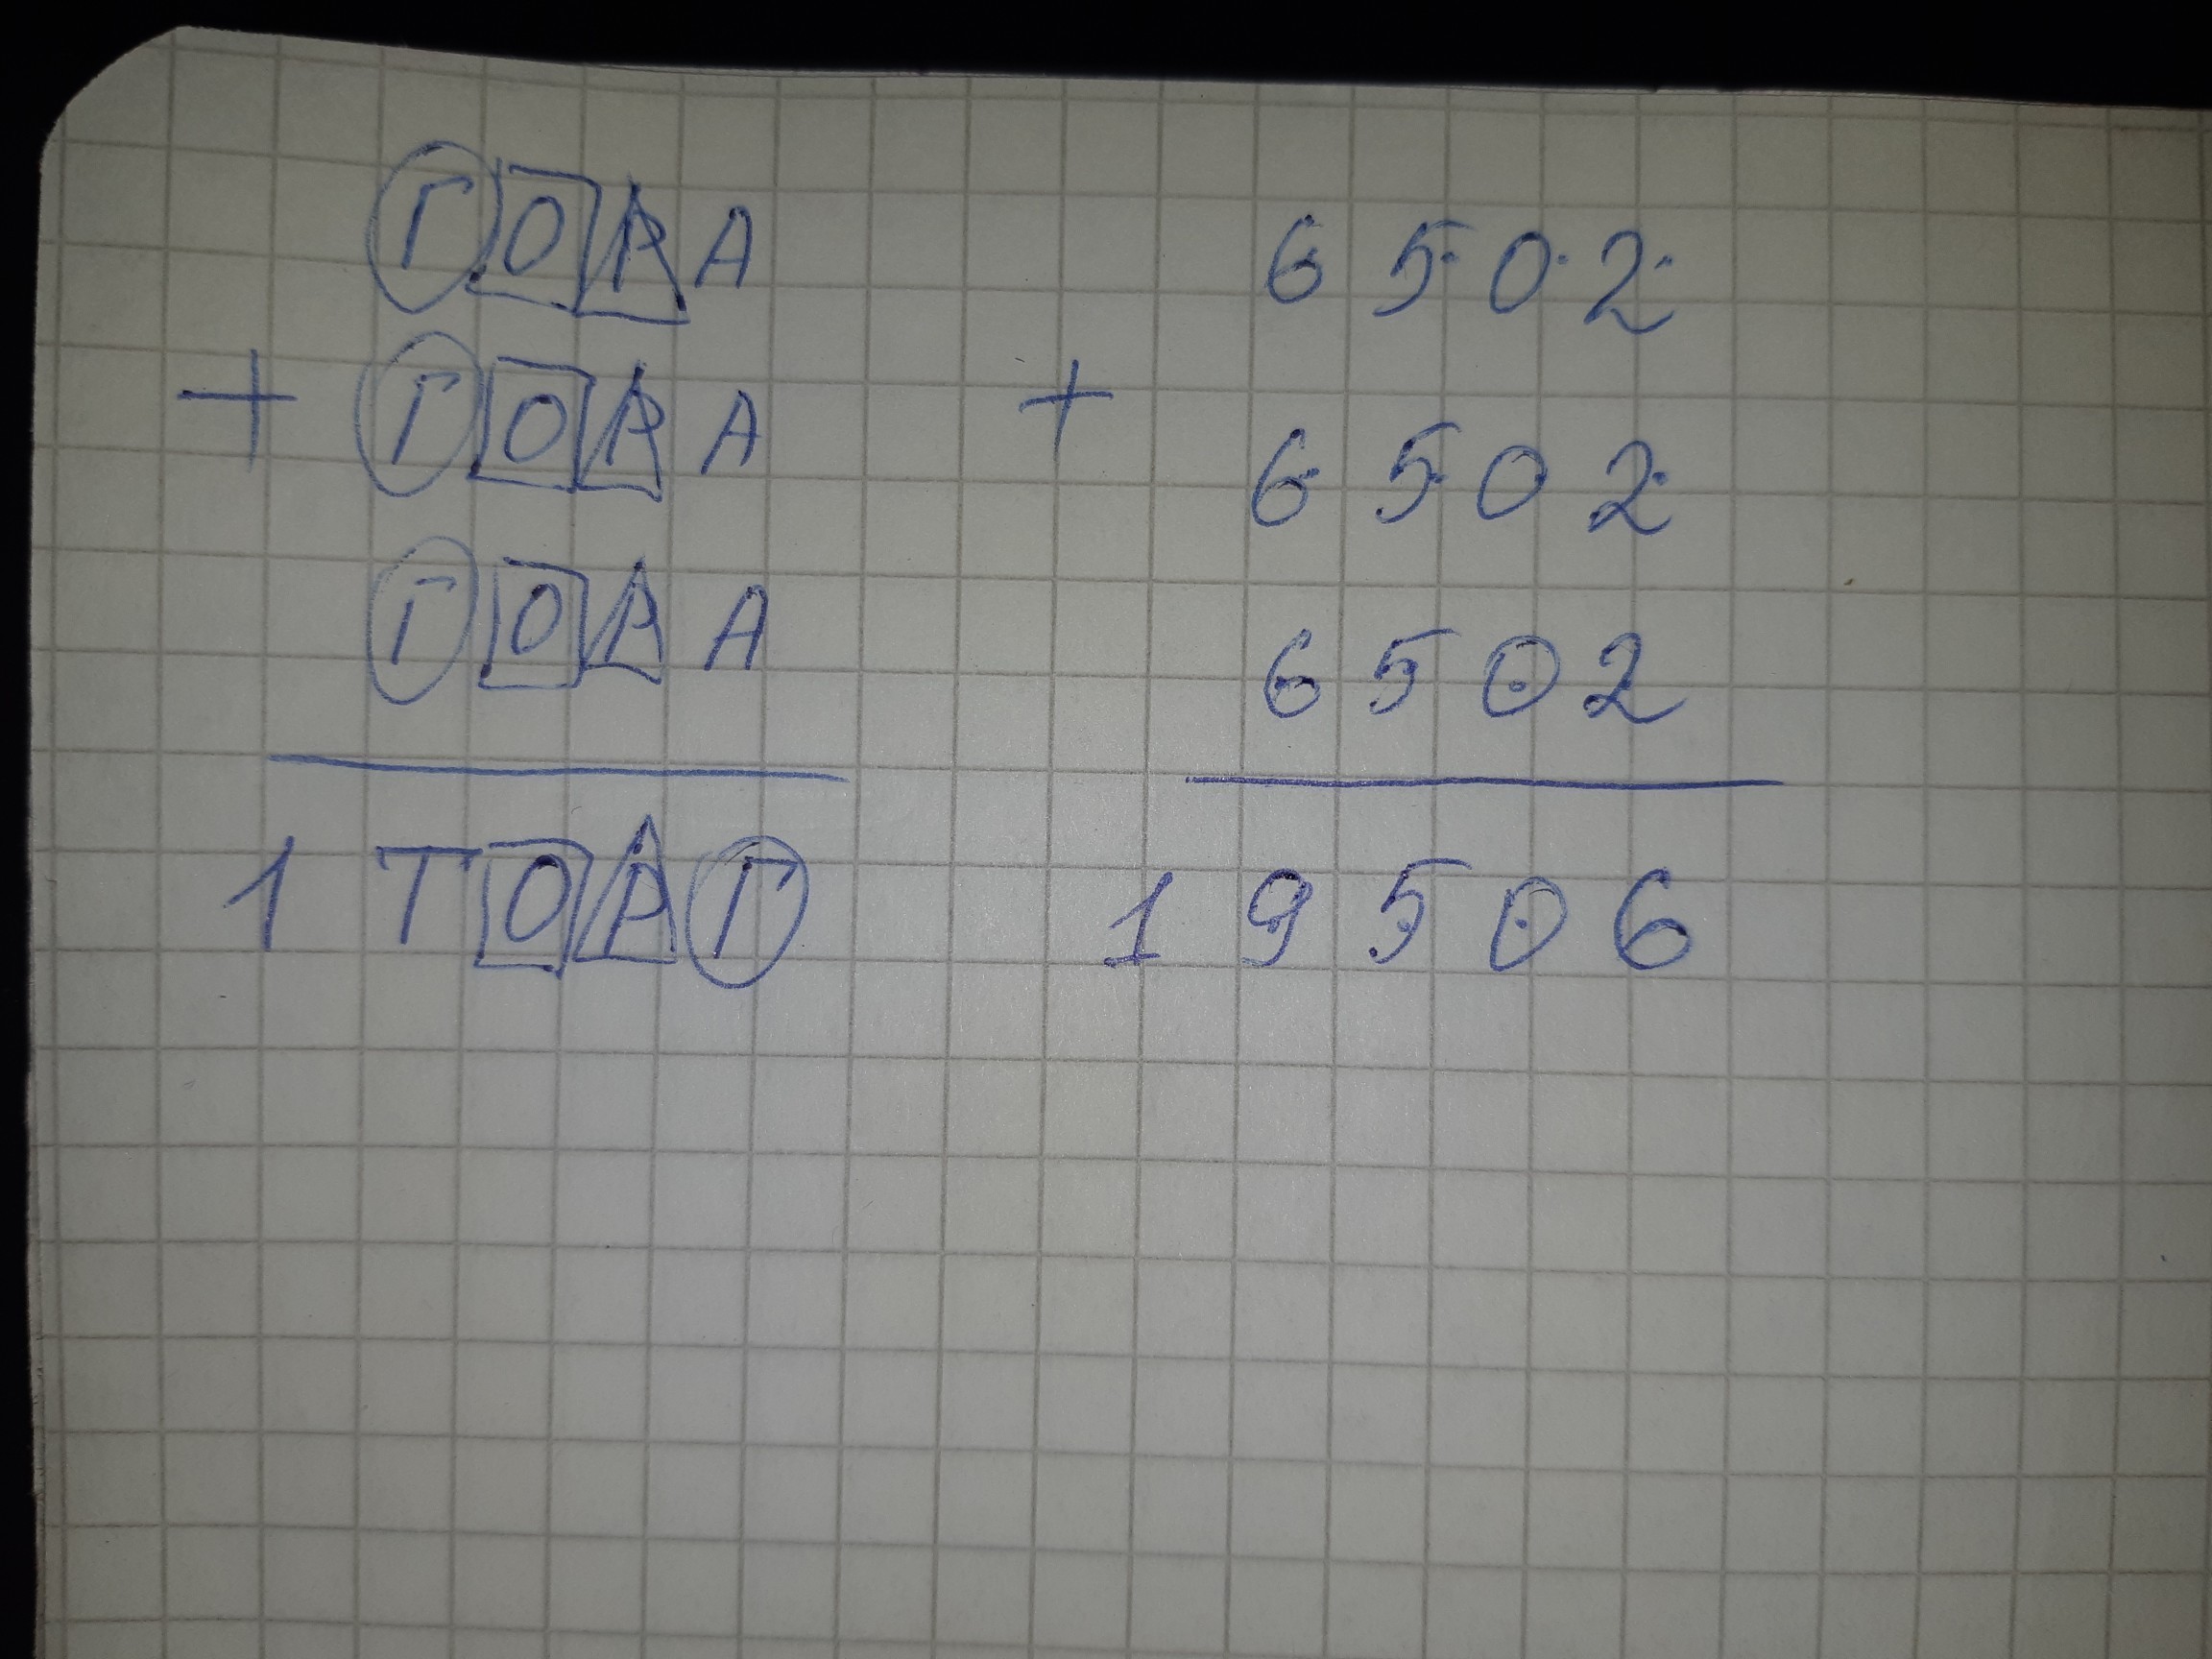 ГОРА 6502
+ ГОРА + 6502
ГОРА 6502
1ТОРГ 19506